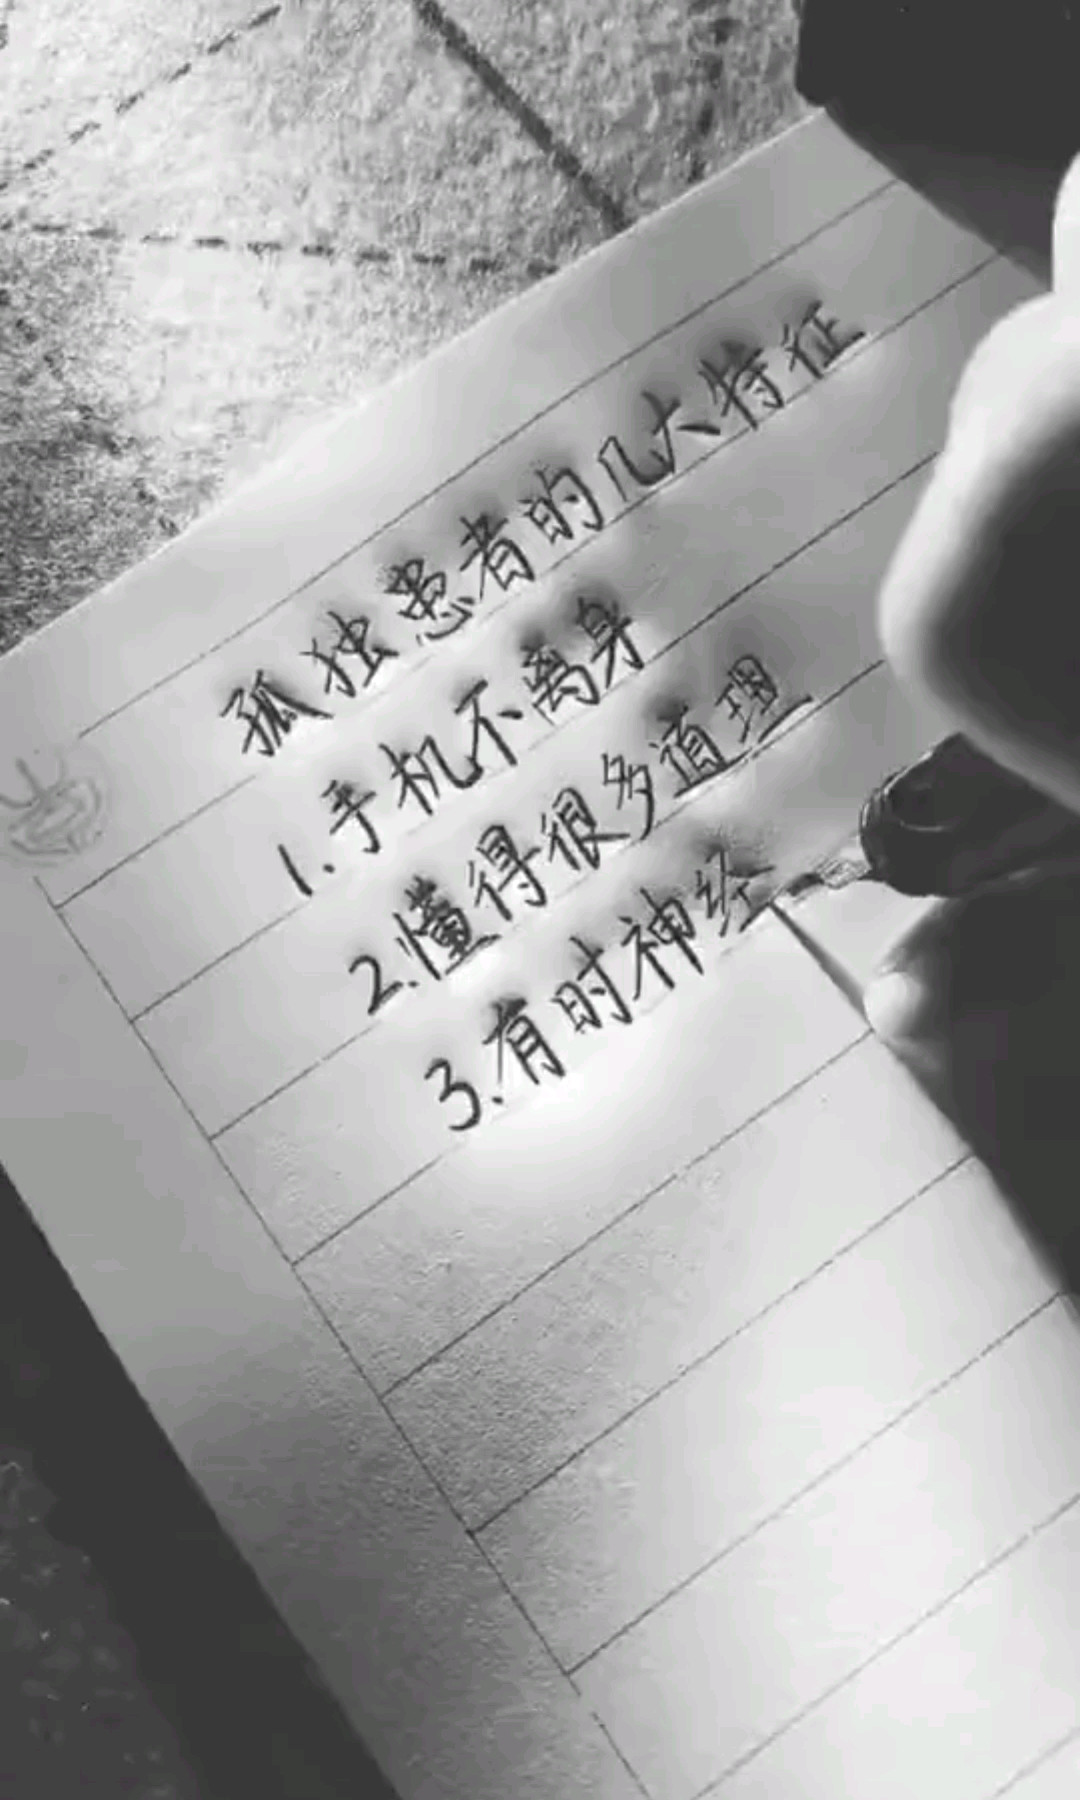 孤独患者的几大特征
1.手机不离身
2.懂得很多道理
3.有时神经